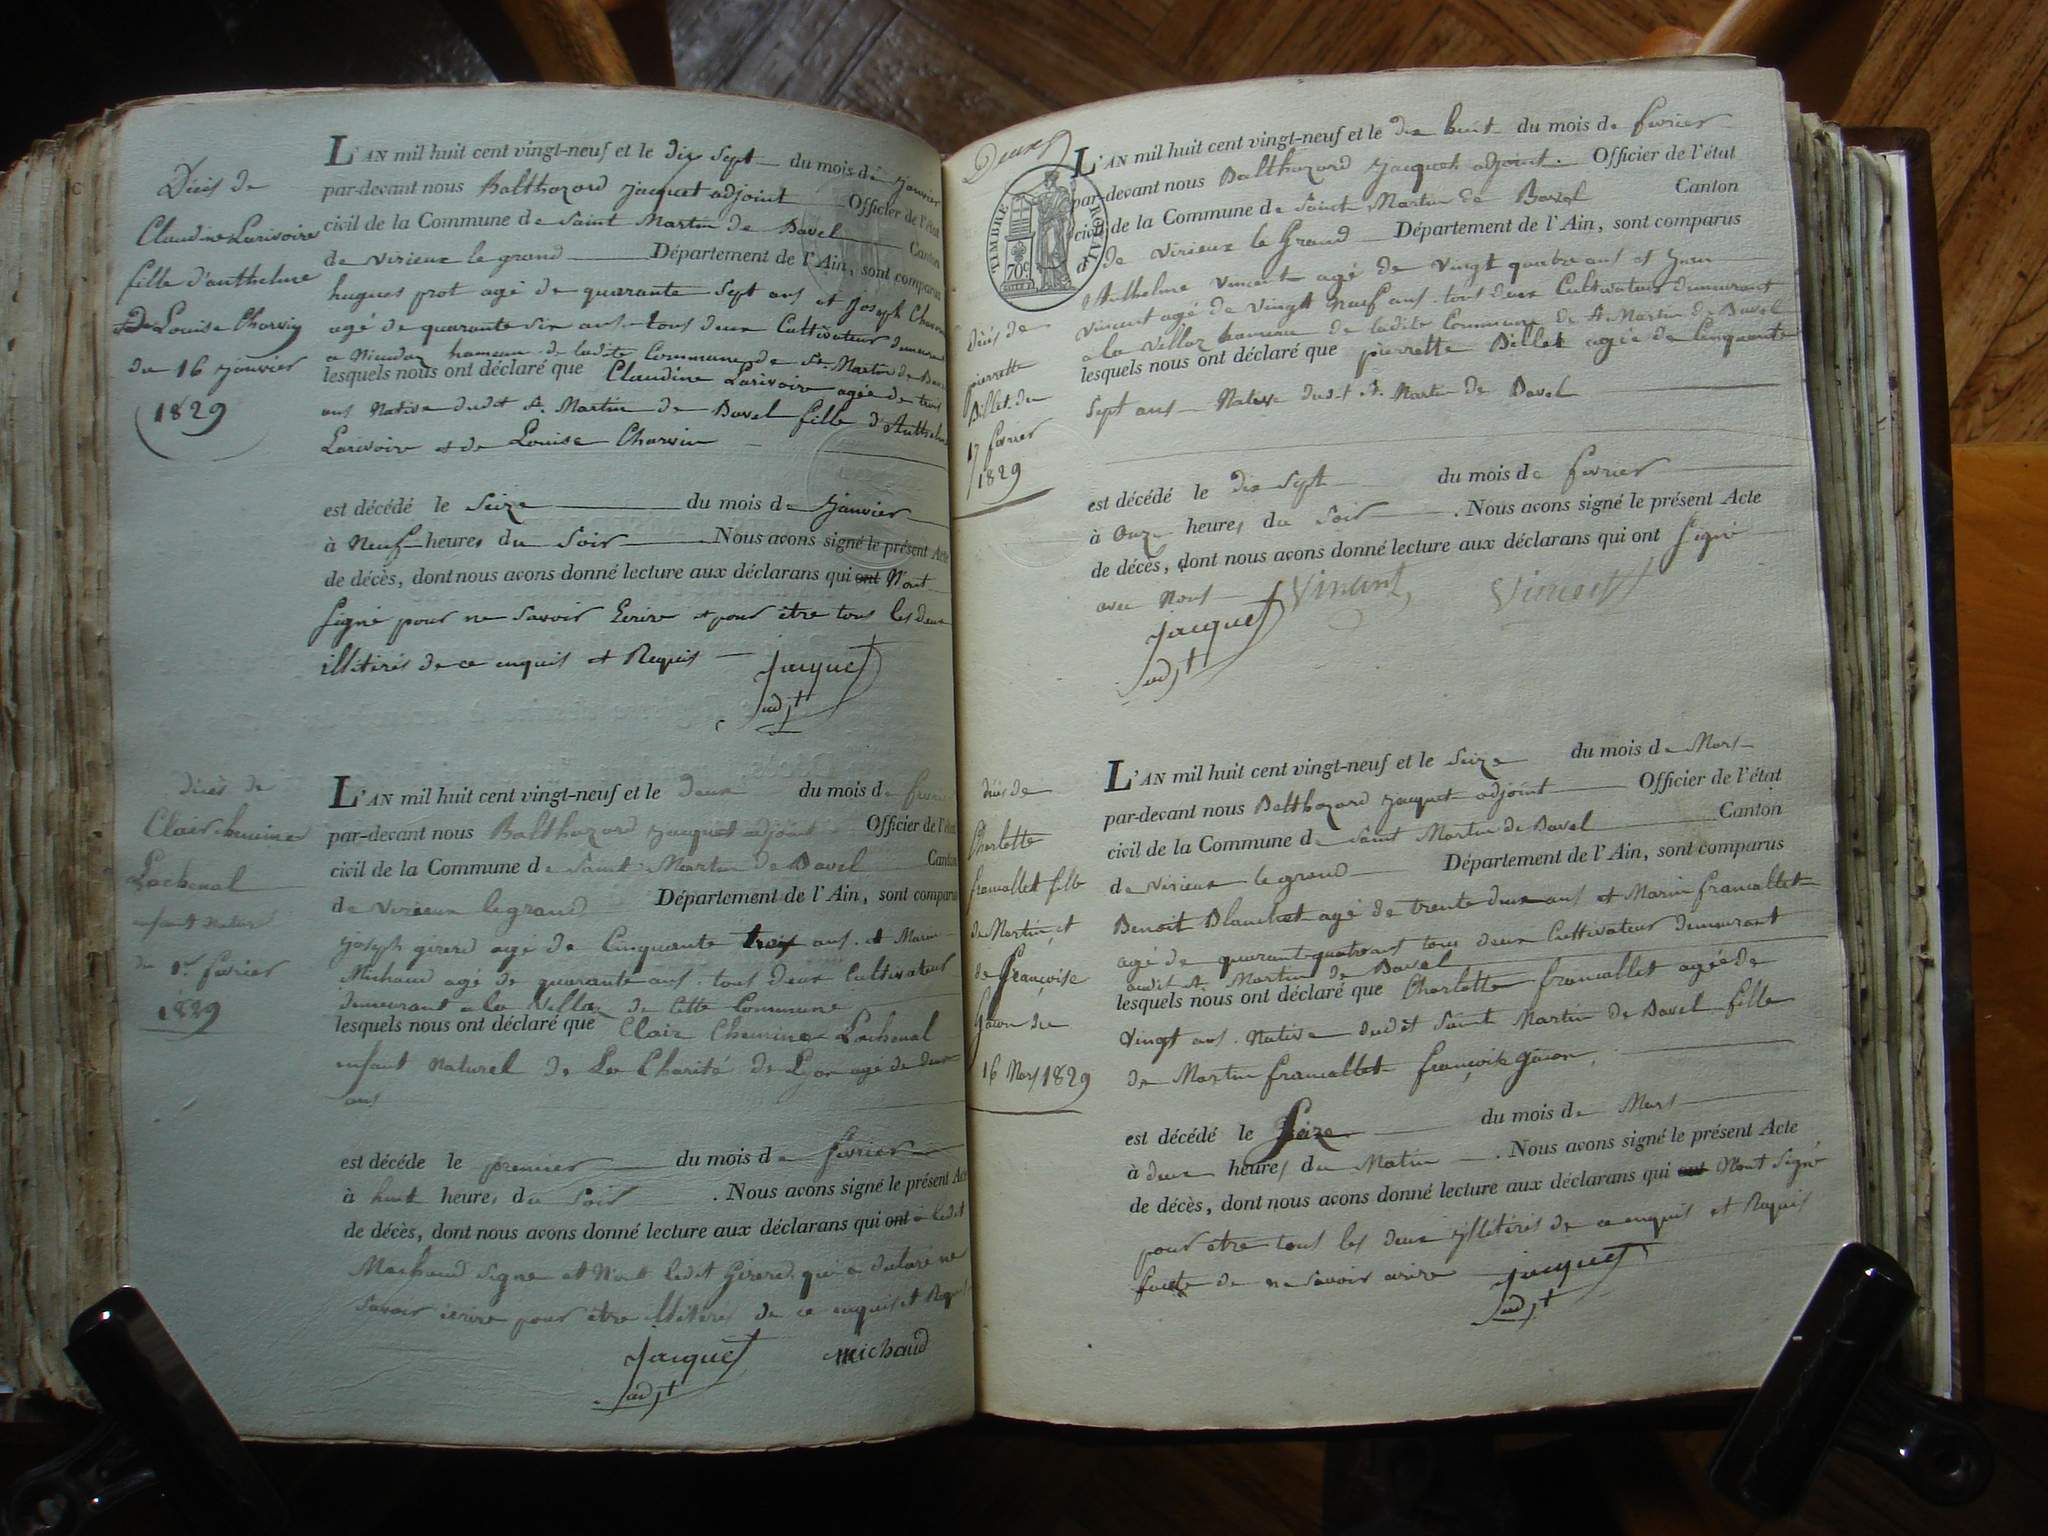 Décès de
Claudine Larivoire
fille d'anthelme
et de Louise Charvin
du 16 janvier
1829
L'AN mil huit cent vingt-neuf et le dix sept du mois de janvier
par-devant nous Balthazard jacquet adjoint Officier de l'état
civil de la Commune de Saint Martin de Bavel Canton
de virieux le grand Département de l'Ain, sont comparus
hugues prot agé de quarante sept ans et joseph
agé de quarante six ans tous deux Cultivateur demeurant
a hameau de ladite Commune de St. Martin de
lesquels nous ont déclaré que Claudine Larivoire agée de trois
ans Native dudit St. Martin de Bavel fille d'Anthelme
Larivoire et de Louise Charvin
est décédé le Seize du mois de janvier
à Neuf heures du Soir Nous avons signé le présent Acte
de décès, dont nous avons donné lecture aux déclarans qui ont N'ont
Signé pour ne Savoir Ecrire et pour être tous les deux
illitérés de ce enquis et Requis
jacquet
adjt
décès de
Clair chemine
Lachenal
enfant naturel
du 1er fevrier
1829
L'AN mil huit cent vingt-neuf et le deux du mois de fevrier
par-devant nous Balthazard jacquet adjoint Officier de l'état
civil de la Commune de Saint Martin de Bavel Canton
de virieux le grand Département de l'Ain, sont comparus
joseph girerd agé de Cinquante trois ans et Marin
Michaud agé de quarante ans tous deux Cultivateur
demeurant a la Villaz de Cette Commune
lesquels nous ont déclaré que Clair Chemine Lachenal
enfant Naturel de La Charité de Lyon agé de deux
ans
est décédé le premier du mois de fevrier
à huit heures du Soir . Nous avons signé le présent Acte
de décès, dont nous avons donné lecture aux déclarans qui ont a ledit
Michaud Signe et N'ont ledit Girerd qui a déclaré ne
Savoir écrire pour être illitéré de ce enquis et Requis
jacquet michaud
adjt
Deux
TIMBRE ROYAL
70c
décès de
pierrette
Billet du
17 fevrier
1829
L'AN mil huit cent vingt-neuf et le dix huit du mois de fevrier
par-devant nous Balthazard jacquet adjoint. Officier de l'état
civil de la Commune de Saint Martin de Bavel Canton
de virieux le Grand Département de l'Ain, sont comparus
Anthelme Vincent agé de Vingt quatre ans et jean
Vincent agé de Vingt Neuf ans tous deux Cultivateur demeurant
a la Villaz hameau de ladite Commune de St. Martin de Bavel
lesquels nous ont déclaré que pierrette Billet agée de Cinquante
Sept ans Native dudit St. Martin de Bavel
est décédé le dix Sept du mois de fevrier
à Onze heures du Soir . Nous avons signé le présent Acte
de décès, dont nous avons donné lecture aux déclarans qui ont Signé
avec Nous Vincent Vincent
jacquet
adjt
décès de
Charlotte
francallet fille
de Martin et
de françoise
du
16 Mars 1829
L'AN mil huit cent vingt-neuf et le Seize du mois de Mars
par-devant nous Balthazard jacquet adjoint Officier de l'état
civil de la Commune de Saint Martin de Bavel Canton
de virieux le grand Département de l'Ain, sont comparus
Benoit Blanchet agé de trente deux ans et Marin francallet
agé de quarante quatre ans tous deux Cultivateur demeurant
audit St. Martin de Bavel
lesquels nous ont déclaré que Charlotte francallet agée de
Vingt ans Native dudit Saint Martin de Bavel fille
de Martin francallet françoise
est décédé le Seize du mois de Mars
à deux heures du Matin . Nous avons signé le présent Acte
de décès, dont nous avons donné lecture aux déclarans qui ont N'ont Signé
pour être tous les deux illitérés de ce enquis et Requis
faute de ne Savoir écrire jacquet
adjt